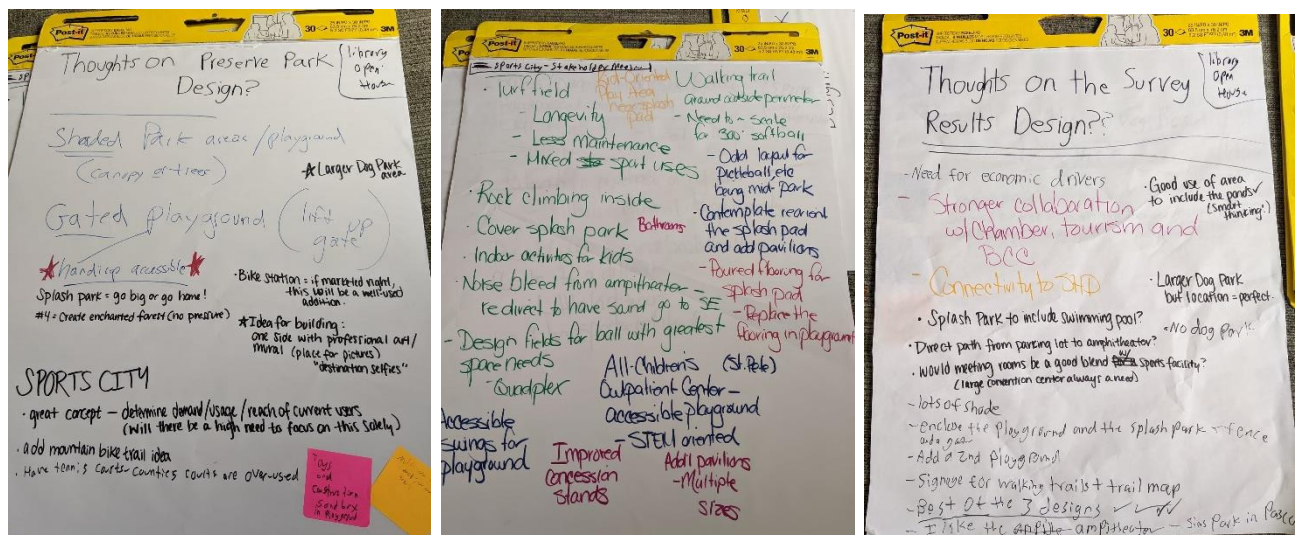 Post-it
30
3M
Thoughts on Preserve Park
Design?
library
open
House
Shaded Park areas/playground
(canopy or trees)
* Larger Dog Park
area
Gated playground
(lift up
gate)
*handicap accessible*
Splash park = go big or go home!
#4 = Create enchanted forest (no pressure)
• Bike station = if marketed right,
this will be a well-used
addition.
* Idea for building:
one side with professional art/
mural (place for pictures)
"destination selfies"
SPORTS CITY
• great concept – determine demand/usage/reach of current users
(will there be a high need to focus on this solely)
• add mountain bike trail idea
• Have tennis courts- counties courts are over-used
Toys
and
Construction
Sand box
in playground
Post-it
30
3M
Sports City - Stakeholder
• Turf field
- Longevity
- Less maintenance
- Mixed sport uses
Kid-Oriented
Play Area
near splash
pad
Walking trail
around outside perimeter
- Need to ~ scale
for 300' softball
- Odd layout for
pickleball, etc
being mid-park
• Rock climbing inside
• Cover splash park
Bathrooms
• Indoor activites for kids
• Noise bleed from ampitheater -
redirect to have sound go to SE
- Design fields for ball with greatest
space needs
- Quadplex
• Contemplate reorient
the splash pad
and add pavilions
- Poured flooring for
splash pad
- Replace the
flooring in playground
All-Children's (St. Pete)
Outpatient Center -
accessible playground
- STEM oriented
Accessible
swings for
playground
Improved
concession
stands
Add'l pavilions
- Multiple
sizes
Post-it
30
3M
Thoughts on the Survey
Results Design??
library
open
House
- Need for economic drivers
- Stronger collaboration
w/Chamber, tourism and
BCC
- Connectivity to SHD
• Good use of area
to include the ponds
(smart
thinking!)
• Larger Dog Park
but location = perfect.
- No dog park.
• Splash Park to include swimming pool?
• Direct path from parking lot to amphitheater?
• would meeting rooms be a good blend w/ sports facility?
(large convention center always a need)
- lots of shade
- enclose the playground and the splash park - fence
- Add a 2nd Playground
- Signage for walking trails + trail map
- Best Of the 3 designs ✓ ✓ ✓
- I like the ampitheater - Sims Park in Pasco